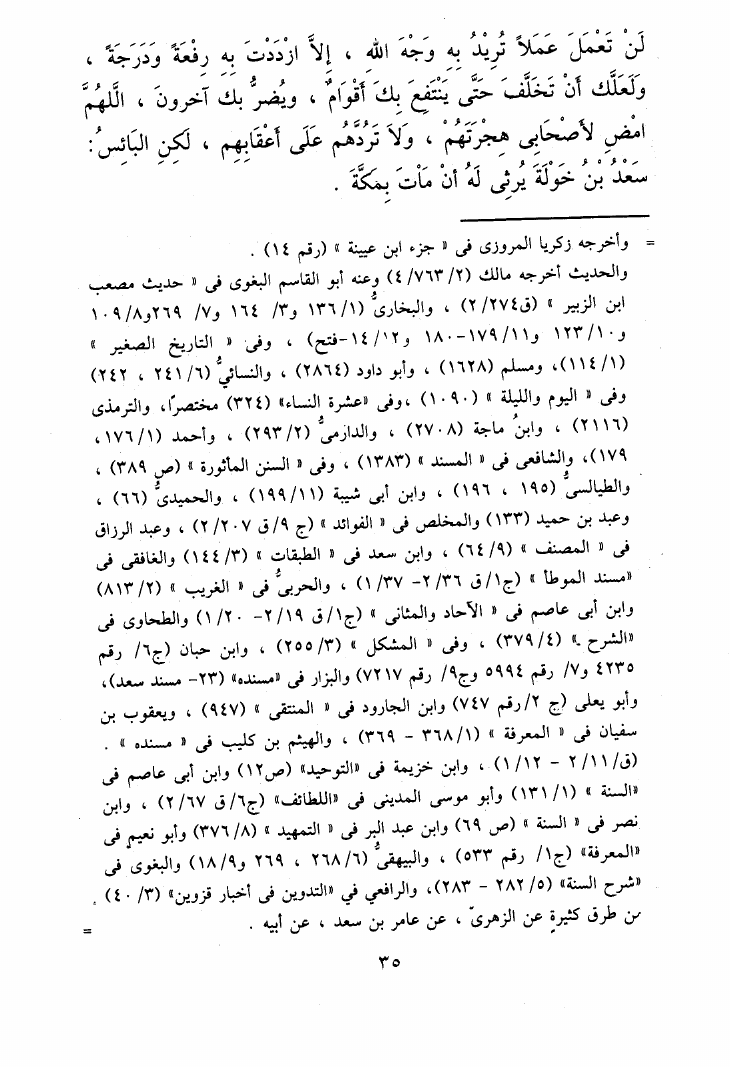 لَنْ تَعْمَلَ عَمَلاً تُرِيْدُ بِهِ وَجْهَ اللهِ ، إِلاَّ ازْدَدْتَ بِهِ رِفْعَةً وَدَرَجَةً ،
وَلَعَلَّك أَنْ تَخَلَّفَ حَتَّى يَنْتَفِعَ بِكَ أَقْوَامٌ ، ويُضرُّ بك آخرونَ ، اللَّهُمَّ
امْضِ لأَصْحَابِى هِجْرَتَهُمْ ، وَلاَ تَرُدَّهُم عَلَى أَعْقَابِهِم ، لَكِن البَائِسُ:
سَعْدُ بْنُ خَوْلَةَ يُرثِى لَهُ أنْ مَاْتَ بِمَكَّةَ .
= وأخرجه زكريا المروزى فى « جزء ابن عيينة » (رقم ١٤) .
والحديث أخرجه مالك (٤/٧٦٣/٢) وعنه أبو القاسم البغوى فى « حديث مصعب
ابن الزبير » (ق٢/٢٧٤) ، والبخارىُّ (١٣٦/١ و٣/ ١٦٤ و٧/ ٢٦٩و١٠٩/٨
و١٢٣/١٠ و١٧٩/١١-١٨٠ و١٤/١٢-فتح) ، وفى « التاريخ الصغير »
(١١٤/١)، ومسلم (١٦٢٨) ، وأبو داود (٢٨٦٤) ، والنسائيُّ (٢٤١/٦ ، ٢٤٢)
وفى « اليوم والليلة » (١٠٩٠) ،وفى «عشرة النساء» (٣٢٤) مختصرًا، والترمذى
(٢١١٦) ، وابنُ ماجة (٢٧٠٨) ، والدارمىُّ (٢٩٣/٢) ، وأحمد (١٧٦/١،
١٧٩)، والشافعى فى « المسند » (١٣٨٣) ، وفى « السنن المأثورة » (ص ٣٨٩) ،
والطيالسىُّ (١٩٥ ، ١٩٦) ، وابن أبى شيبة (١٩٩/١١) ، والحميدىُّ (٦٦) ،
وعبد بن حميد (١٣٣) والمخلص فى « الفوائد » (ج ٩/ق ٢/٢٠٧) ، وعبد الرزاق
فى « المصنف » (٦٤/٩) ، وابن سعد فى « الطبقات » (١٤٤/٣) والغافقى فى
«مسند الموطأ » (ج١/ق ٢/٣٦- ١/٣٧) ، والحربىُّ فى « الغريب » (٨١٣/٢)
وابن أبى عاصم فى « الآحاد والمثانى » (ج١/ق ٢/١٩- ١/٢٠) والطحاوى فى
«الشرح » (٣٧٩/٤) ، وفى « المشكل » (٢٥٥/٣) ، وابن حبان (ج٦/ رقم
٤٢٣٥ و٧/ رقم ٥٩٩٤ وج٩/ رقم ٧٢١٧) والبزار فى «مسنده» (٢٣- مسند سعد)،
وأبو يعلى (ج ٢/رقم ٧٤٧) وابن الجارود فى « المنتقى » (٩٤٧) ، ويعقوب بن
سفيان فى « المعرفة » (٣٦٨/١ - ٣٦٩) ، والهيثم بن كليب فى « مسنده » .
(ق/٢/١١ - ١/١٢) ، وابن خزيمة فى «التوحيد» (ص١٢) وابن أبى عاصم فى
«السنة » (١٣١/١) وأبو موسى المدينى فى «اللطائف» (ج٦/ق ٢/٦٧) ، وابن
نصر فى « السنة » (ص ٦٩) وابن عبد البر فى « التمهيد » (٣٧٦/٨) وأبو نعيم فى
«المعرفة» (ج١/ رقم ٥٣٣) ، والبيهقىُّ (٢٦٨/٦ ، ٢٦٩ و١٨/٩) والبغوى فى
«شرح السنة» (٢٨٢/٥ - ٢٨٣)، والرافعي في «التدوين فى أخبار قزوين» (٤٠/٣) .
من طرق كثيرةٍ عن الزهرىّ ، عن عامر بن سعد ، عن أبيه .
=
٣٥